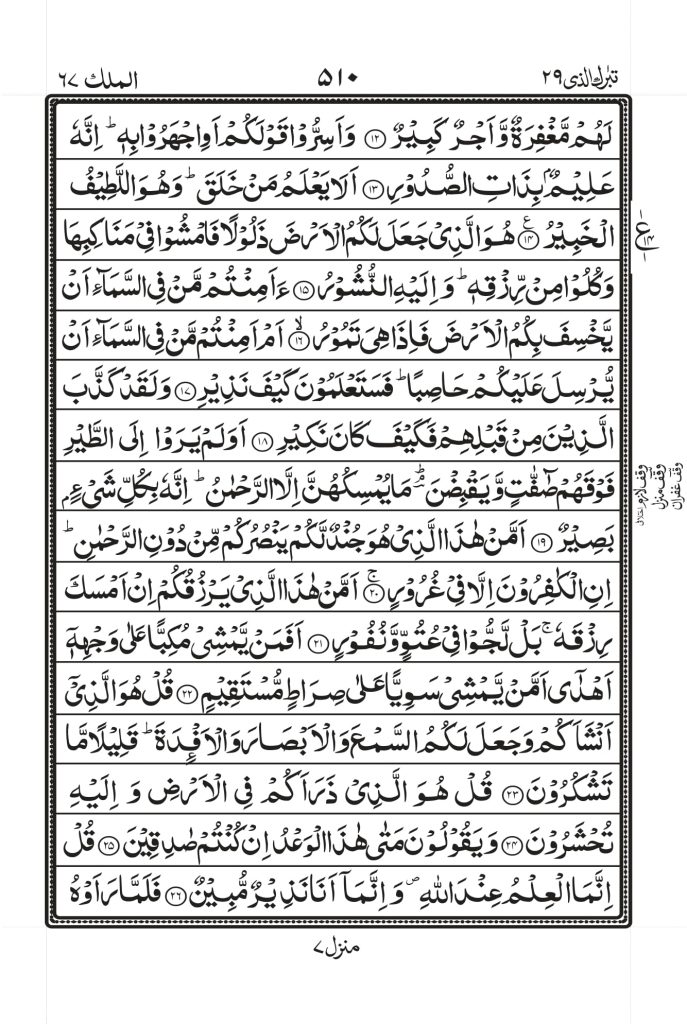 تبٰرك الذی ۲۹
۵۱۰
الملك ۶۷
لَهُمْ مَّغْفِرَةٌ وَّاَجْرٌ كَبِيْرٌ ﴿۱۲﴾ وَاَسِرُّوْا قَوْلَكُمْ اَوِ اجْهَرُوْا بِهٖ ؕ اِنَّهٗ
عَلِيْمٌۢ بِذَاتِ الصُّدُوْرِ ﴿۱۳﴾ اَلَا يَعْلَمُ مَنْ خَلَقَ ؕ وَهُوَ اللَّطِيْفُ
الْخَبِيْرُ ﴿۱۴﴾ هُوَ الَّذِیْ جَعَلَ لَكُمُ الْاَرْضَ ذَلُوْلًا فَامْشُوْا فِیْ مَنَاكِبِهَا
ع ۱۴
وَكُلُوْا مِنْ رِّزْقِهٖ ؕ وَاِلَيْهِ النُّشُوْرُ ﴿۱۵﴾ ءَاَمِنْتُمْ مَّنْ فِی السَّمَآءِ اَنْ
يَّخْسِفَ بِكُمُ الْاَرْضَ فَاِذَا هِیَ تَمُوْرُ ﴿۱۶﴾ۙ اَمْ اَمِنْتُمْ مَّنْ فِی السَّمَآءِ اَنْ
يُّرْسِلَ عَلَيْكُمْ حَاصِبًا ؕ فَسَتَعْلَمُوْنَ كَيْفَ نَذِيْرِ ﴿۱۷﴾ وَلَقَدْ كَذَّبَ
الَّذِيْنَ مِنْ قَبْلِهِمْ فَكَيْفَ كَانَ نَكِيْرِ ﴿۱۸﴾ اَوَلَمْ يَرَوْا اِلَی الطَّيْرِ
فَوْقَهُمْ صٰٓفّٰتٍ وَّيَقْبِضْنَ ؔۘ مَا يُمْسِكُهُنَّ اِلَّا الرَّحْمٰنُ ؕ اِنَّهٗ بِكُلِّ شَیْءٍۭ
وقف لازم
وقف منزل
وقف غفران
بَصِيْرٌ ﴿۱۹﴾ اَمَّنْ هٰذَا الَّذِیْ هُوَ جُنْدٌ لَّكُمْ يَنْصُرُكُمْ مِّنْ دُوْنِ الرَّحْمٰنِ ؕ
اِنِ الْكٰفِرُوْنَ اِلَّا فِیْ غُرُوْرٍ ﴿۲۰﴾ۚ اَمَّنْ هٰذَا الَّذِیْ يَرْزُقُكُمْ اِنْ اَمْسَكَ
رِزْقَهٗ ۚ بَلْ لَّجُّوْا فِیْ عُتُوٍّ وَّنُفُوْرٍ ﴿۲۱﴾ اَفَمَنْ يَّمْشِیْ مُكِبًّا عَلٰی وَجْهِهٖۤ
اَهْدٰۤی اَمَّنْ يَّمْشِیْ سَوِيًّا عَلٰی صِرَاطٍ مُّسْتَقِيْمٍ ﴿۲۲﴾ قُلْ هُوَ الَّذِیْۤ
اَنْشَاَكُمْ وَجَعَلَ لَكُمُ السَّمْعَ وَالْاَبْصَارَ وَالْاَفْـِٕدَةَ ؕ قَلِيْلًا مَّا
تَشْكُرُوْنَ ﴿۲۳﴾ قُلْ هُوَ الَّذِیْ ذَرَاَكُمْ فِی الْاَرْضِ وَاِلَيْهِ
تُحْشَرُوْنَ ﴿۲۴﴾ وَيَقُوْلُوْنَ مَتٰی هٰذَا الْوَعْدُ اِنْ كُنْتُمْ صٰدِقِيْنَ ﴿۲۵﴾ قُلْ
اِنَّمَا الْعِلْمُ عِنْدَ اللّٰهِ ۪ وَاِنَّمَاۤ اَنَا نَذِيْرٌ مُّبِيْنٌ ﴿۲۶﴾ فَلَمَّا رَاَوْهُ
منزل ۷